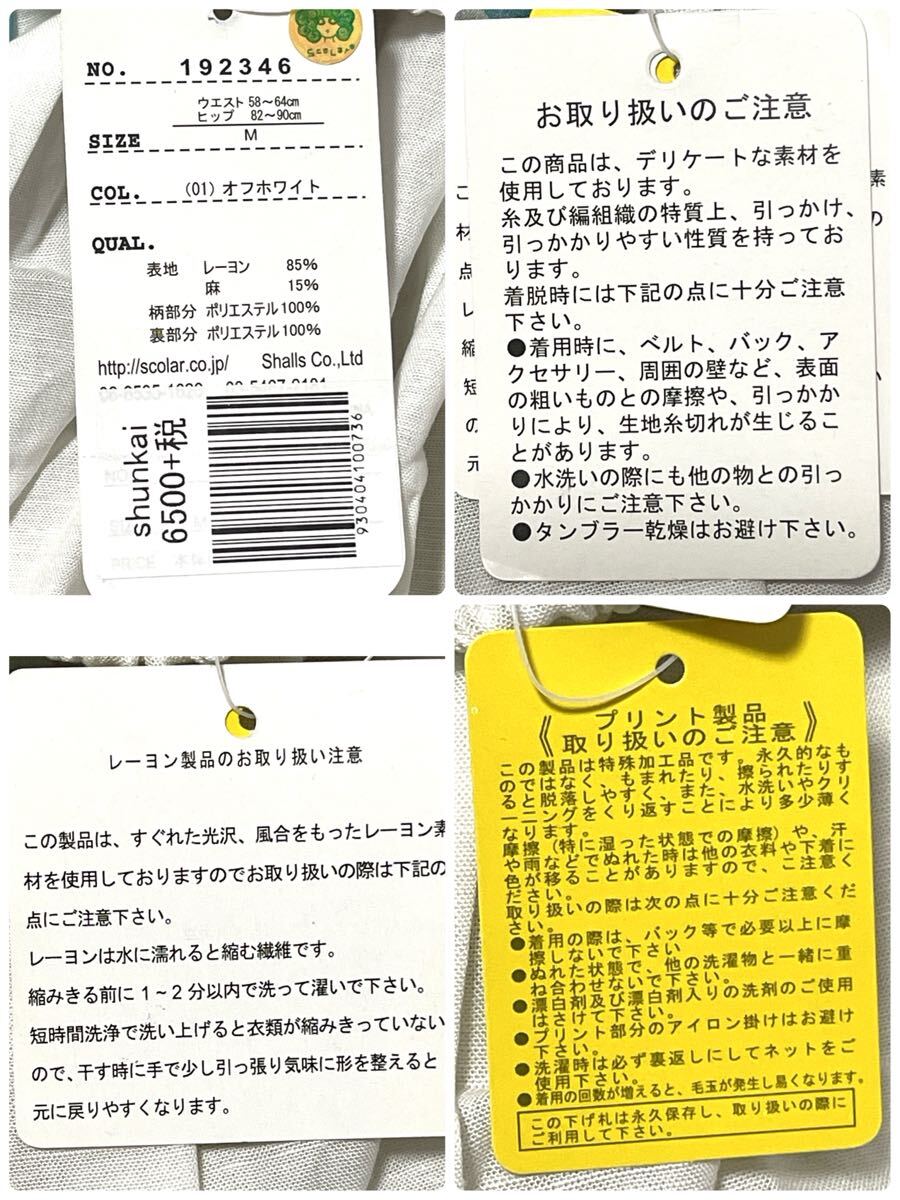 NO. 192346
ウエスト 58～64㎝
ヒップ 82～90㎝
SIZE M
COL. (01) オフホワイト
QUAL.
表地 レーヨン 85%
麻 15%
柄部分 ポリエステル100%
裏部分 ポリエステル100%
http://scolar.co.jp/ Shalls Co.,Ltd
shunkai
6500+税
930404100736
お取り扱いのご注意
この商品は、デリケートな素材を
使用しております。
糸及び編組織の特質上、引っかけ、
引っかかりやすい性質を持ってお
ります。
着脱時には下記の点に十分ご注意
下さい。
●着用時に、ベルト、バック、ア
クセサリー、周囲の壁など、表面
の粗いものとの摩擦や、引っかか
りにより、生地糸切れが生じるこ
とがあります。
●水洗いの際にも他の物との引っ
かかりにご注意下さい。
●タンブラー乾燥はお避け下さい。
こ
材
点
レ
縮
短
の
元
素
の
レーヨン製品のお取り扱い注意
この製品は、すぐれた光沢、風合をもったレーヨン素
材を使用しておりますのでお取り扱いの際は下記の
点にご注意下さい。
レーヨンは水に濡れると縮む繊維です。
縮みきる前に1～2分以内で洗って濯いで下さい。
短時間洗浄で洗い上げると衣類が縮みきっていない
ので、干す時に手で少し引っ張り気味に形を整えると
元に戻りやすくなります。
《プリント製品
取り扱いのご注意》
この製品は特殊加工品です。永久的なも
のではなく、もまれたり、擦られたりす
ると脱落しやすく、また、水洗いやクリ
ーニングをくり返すことにより多少薄く
なります。
摩擦（特に湿った状態での摩擦）や、汗
や雨などでぬれた時は他の衣料や下着に
色が移ることがありますので、ご注意く
ださい。
取り扱いの際は次の点に十分ご注意くだ
さい。
●着用の際は、バック等で必要以上に摩
擦しないで下さい
●ぬれた状態で、他の洗濯物と一緒に重
ね合わせないで下さい。
●漂白剤及び漂白剤入りの洗剤のご使用
はさけて下さい。
●プリント部分のアイロン掛けはお避け
下さい。
●洗濯時は必ず裏返しにしてネットをご
使用下さい。
●着用の回数が増えると、毛玉が発生し易くなります。
この下げ札は永久保存し、取り扱いの際に
ご利用して下さい。